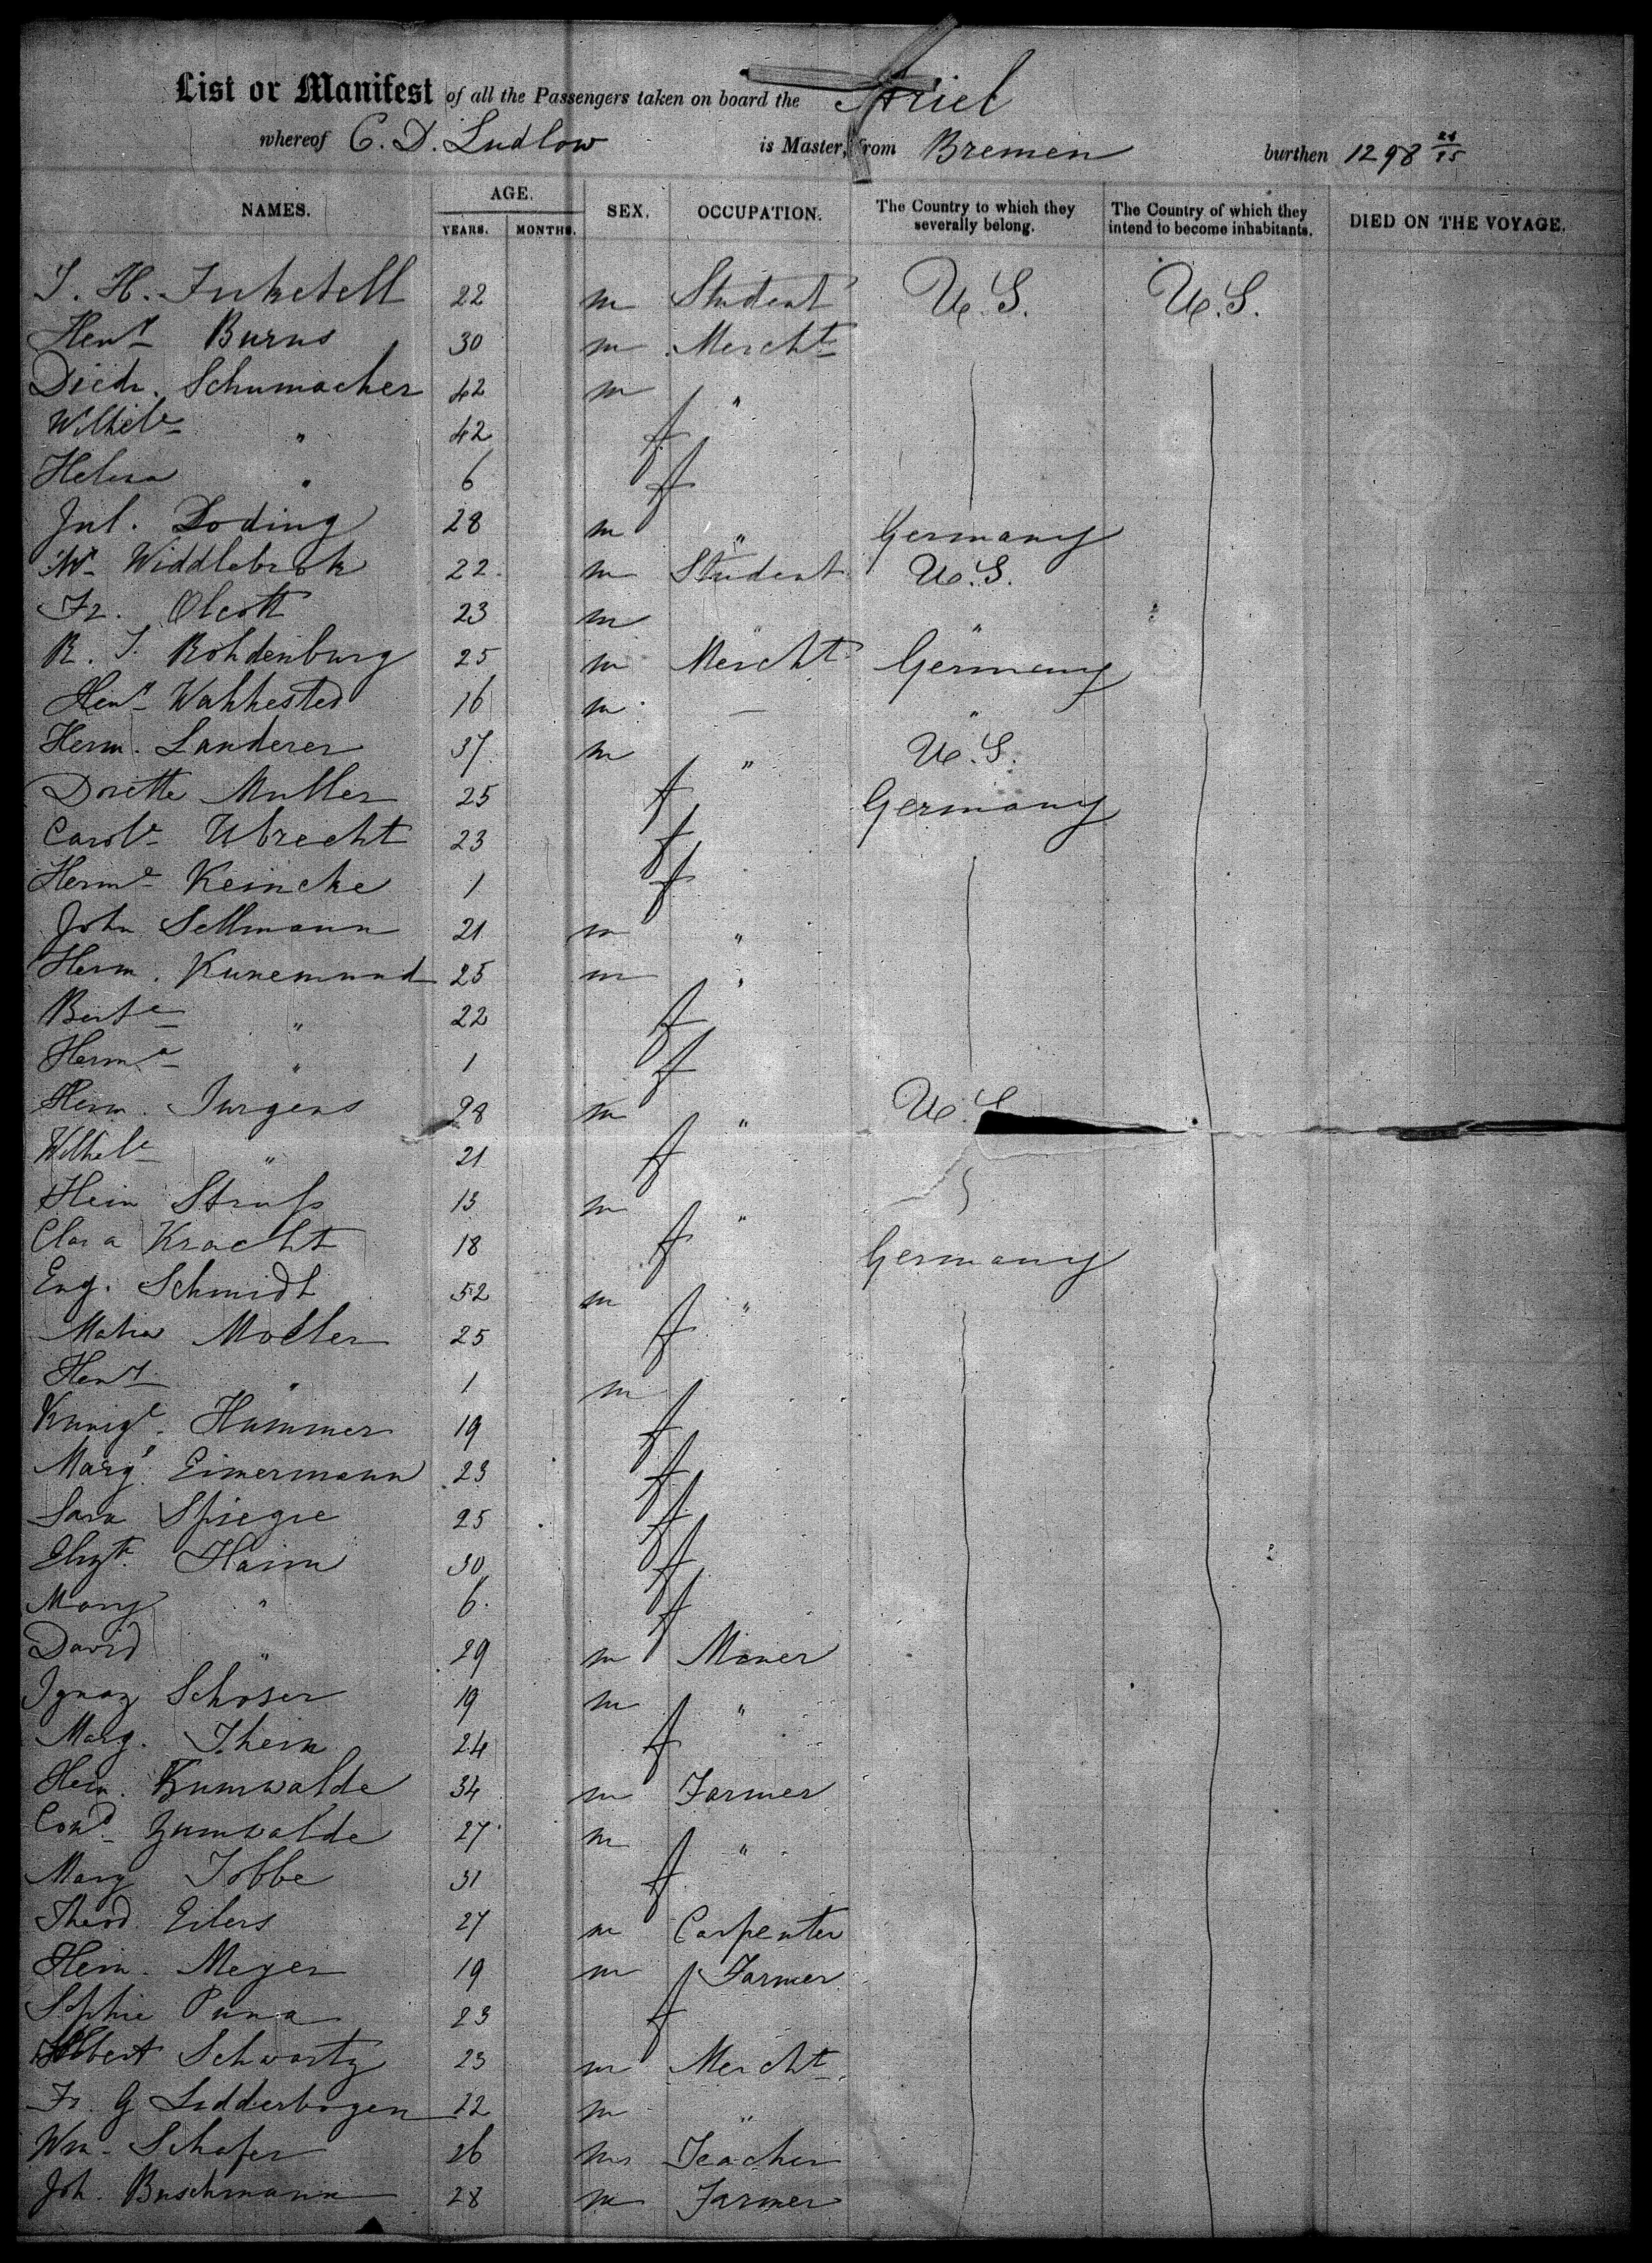 List or Manifest of all the Passengers taken on board the Ariel
whereof C. D. Ludlow is Master, from Bremen burthen 1298 24/95
NAMES. AGE. YEARS. MONTHS. SEX. OCCUPATION. The Country to which they severally belong. The Country of which they intend to become inhabitants. DIED ON THE VOYAGE.
J. H. 22 m Student U.S. U.S.
Henry Burns 30 m Mercht
Diedr. Schumacher 42 m "
Wilhele " 42 f
Helena " 6 f
Jul. Doding 28 m " Germany
Wm Widdlebrok 22 m Student U.S.
Fr. Olcott 23 m " "
R. J. Rohdenburg 25 m Mercht Germany
Henry Wahhested 16 m — "
Herm. Landerer 37 m " U.S.
Dorette Muller 25 f Germany
Carole Ubrecht 23 f
Herme Reincke 1 f
John Sellmann 21 m "
Herm. Kunemund 25 m "
Berte " 22 f
Herme " 1 f
Herm. Jurgens 28 m " U.S.
Wilhele " 21 f
Hein Struss 13 m "
Clara Kracht 18 f Germany
Eng. Schmidt 52 m "
Maria Moller 25 f
Henry " 1 m
Kunige Hammer 19 f
Margt Eimermann 23 f
Sara Spiegre 25 f
Elizth Haim 30 f
Mary " 6 f
David " 29 m Miner
Ignaz Schoser 19 m "
Marg. Thein 24 f
Hein. Zumwalde 34 m Farmer
Cond Zumwalde 27 m "
Mary Tobbe 31 f
Theod. Eilers 27 m Carpenter
Hein. Meyer 19 m Farmer
Sophie Puna 23 f
Albert Schwartz 23 m Mercht
Fr. G Lidderbogen 22 m "
Wm Schafer 26 m Teacher
Joh. Buschmann 28 m Farmer